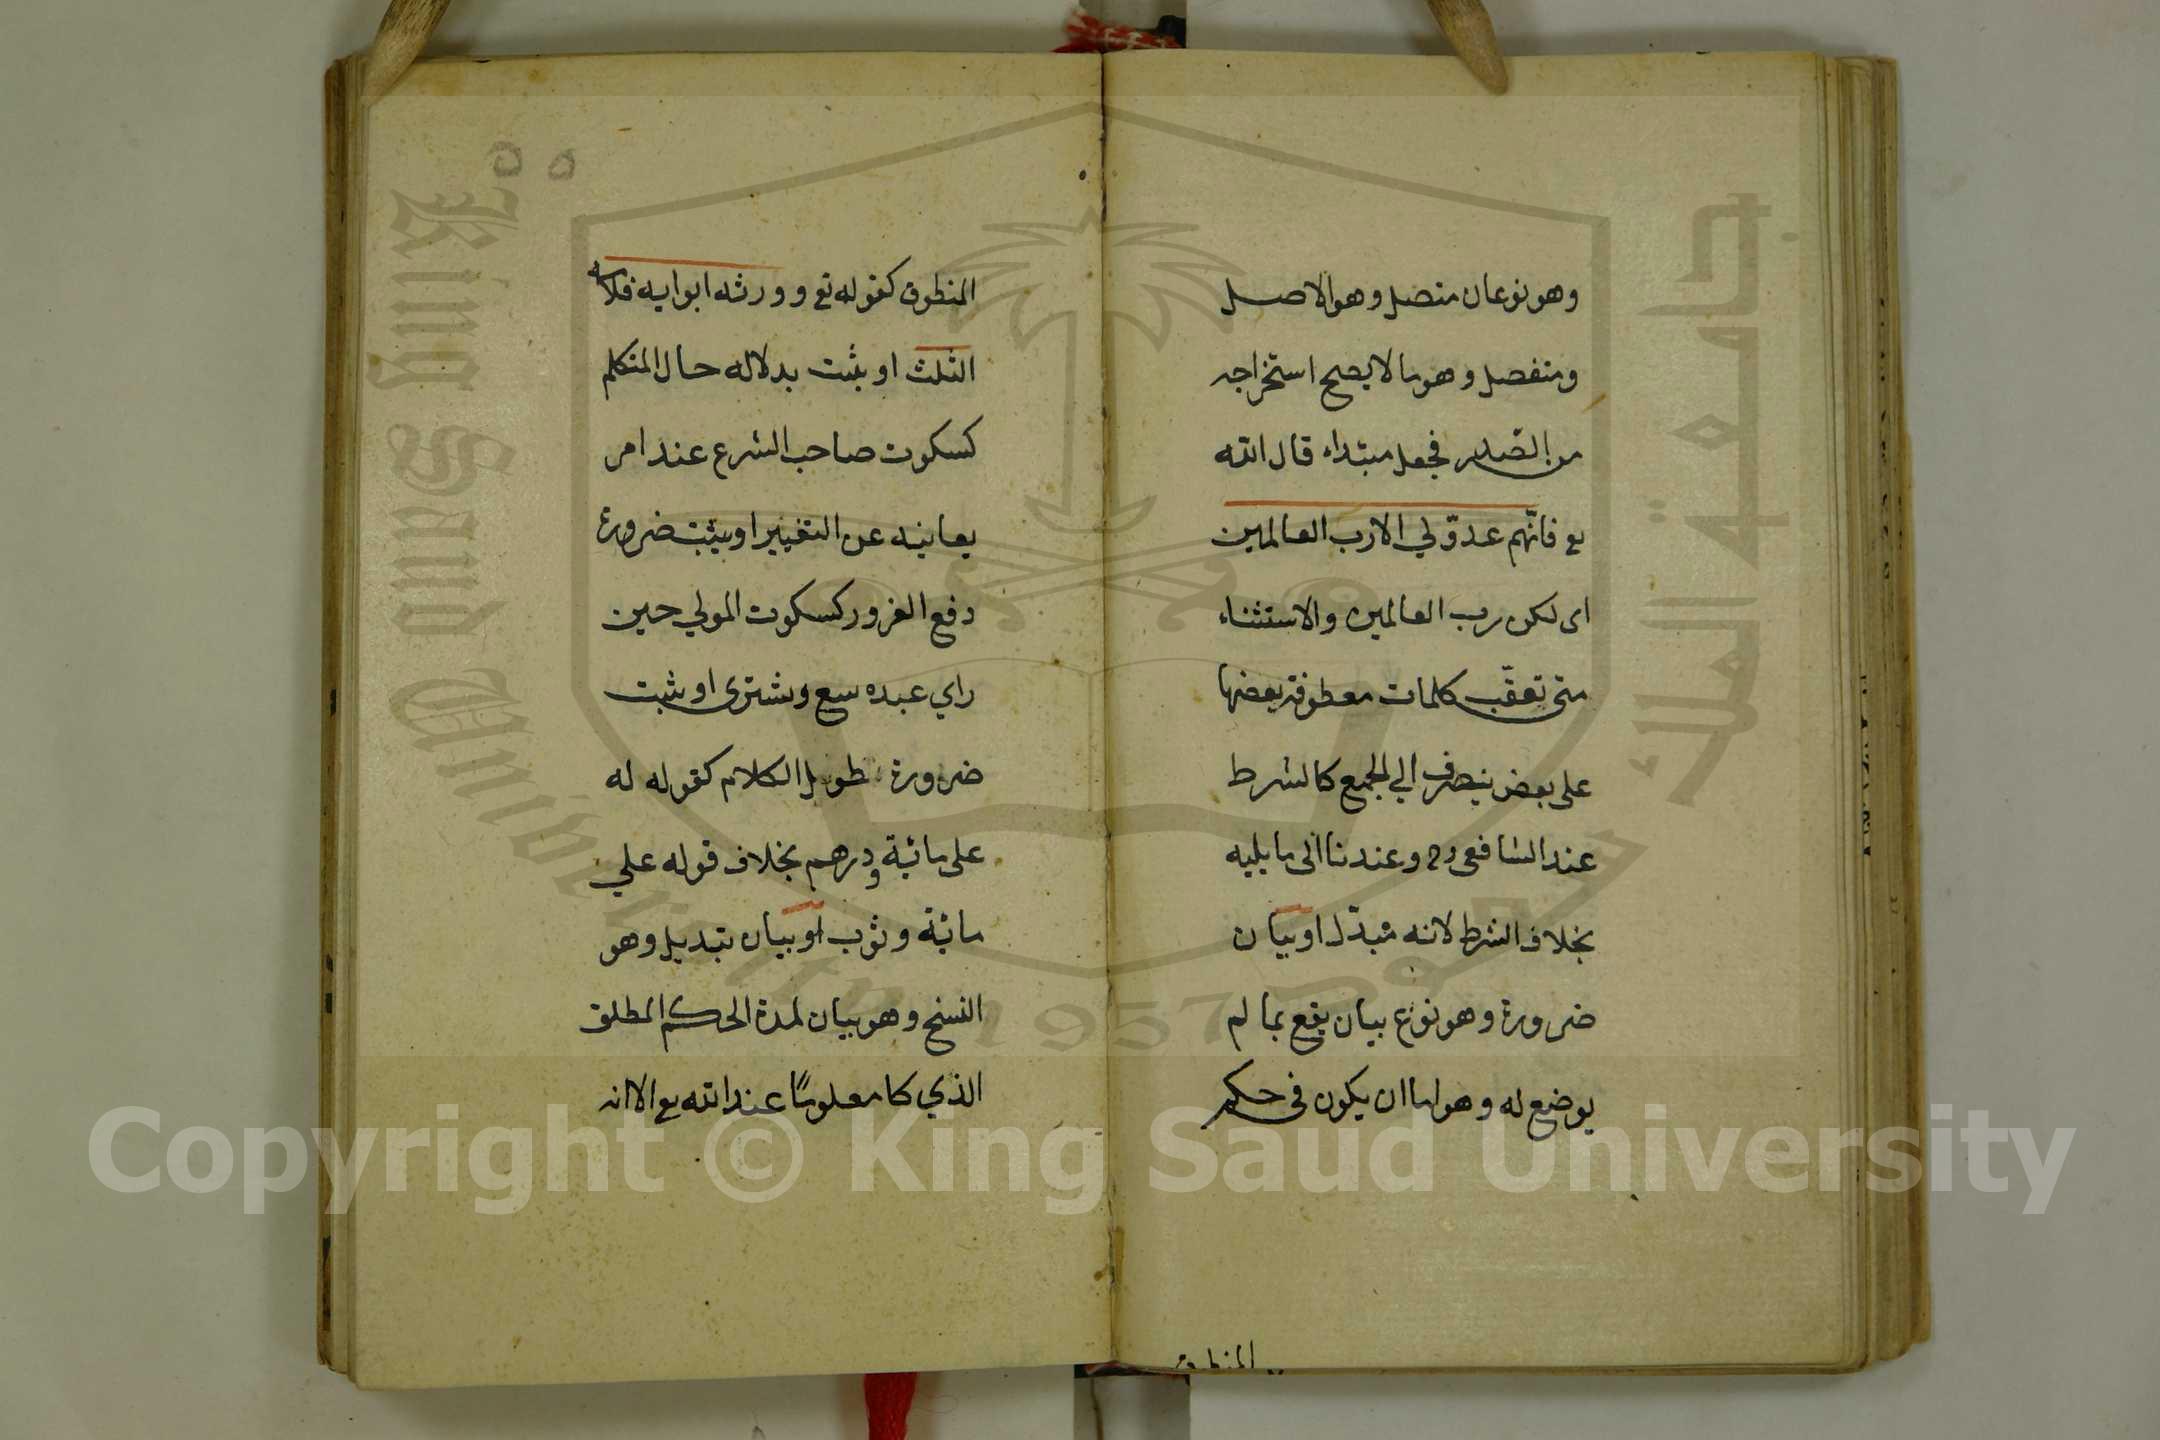 وهو نوعان متصل وهو الاصل
ومنفصل وهو ما لا يصح استخراجه
من الصّدر فجعل مبتداء قال الله
تع فانّهم عدوّ لي الا رب العالمين
اى لكن رب العالمين والاستثناء
متى تعقّب كلمات معطوفة بعضها
على بعض ينصرف الي الجميع كالشرط
عند الشافعى رح وعندنا الى ما يليه
بخلاف الشرط لانه مبدّل او بيان
ضرورة وهو نوع بيان يقع بما لم
يوضع له وهو اما ان يكون فى حكم
المنطوق
٥٥
المنطوق كقوله تع وورثه ابواه فلامه
الثلث او يثبت بدلالة حال المتكلم
كسكوت صاحب الشرع عند امر
يعاينه عن التغيير او يثبت ضرورة
دفع الغرور كسكوت المولي حين
راي عبده يبيع ويشترى او يثبت
ضرورة طول الكلام كقوله له
على مائة ودرهم بخلاف قوله علي
مائة وثوب او بيان تبديل وهو
النسخ وهو بيان لمدة الحكم المطلق
الذي كا معلومًا عند الله تع الا انه
جامعة الملك سعود
King Saud University
1957
Copyright © King Saud University